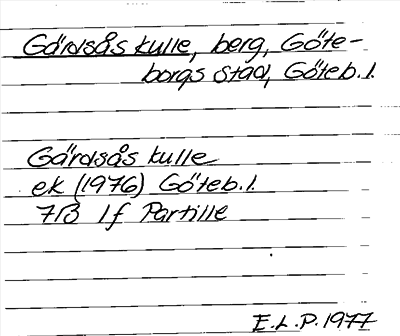 Gårdsås kulle, berg, Göte-
borgs stad, Göteb. l.
Gårdsås kulle
ek (1976) Göteb. l.
7B 1f Partille
E.L.P. 1977